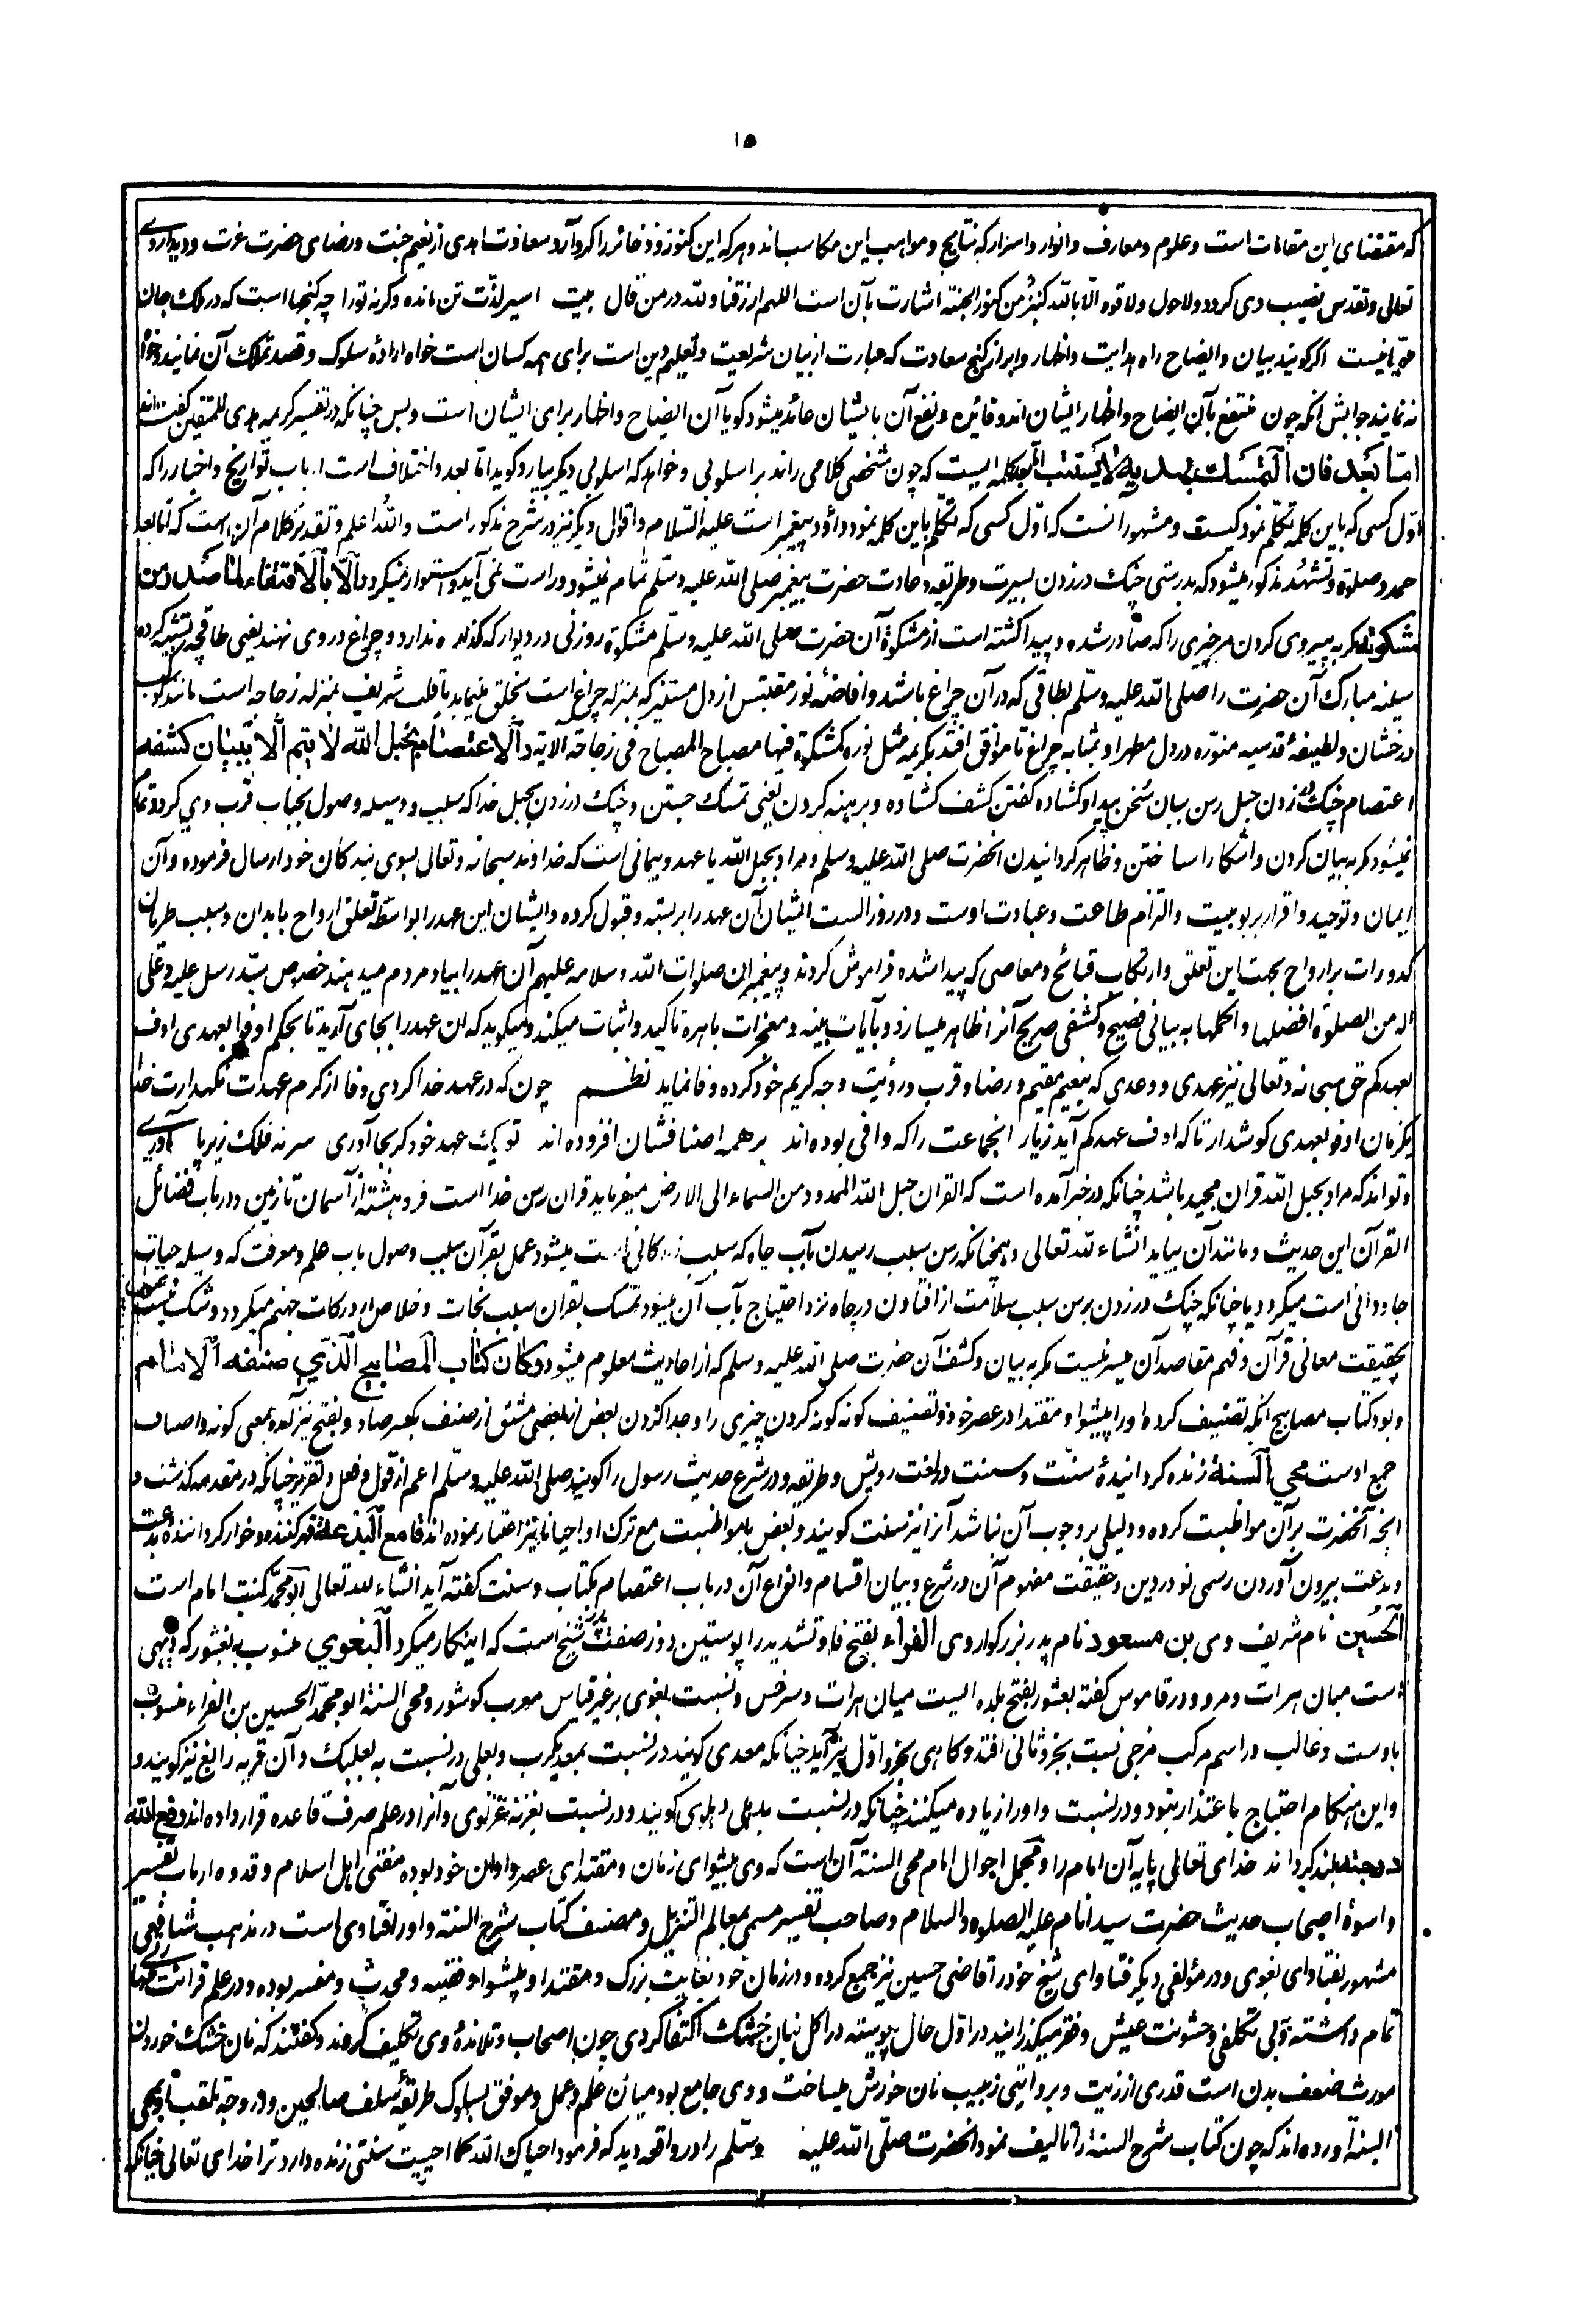 ۱۵
که مقتضای این مقامات است و علوم و معارف و انوار و اسرار که نتایج و مواهب این مکاسب اند و هر که این کنوز و ذخائر را کرد آرد سعادت ابدی از نعیم جنت و رضای حضرت عزت و دیدار روی
تعالی و تقدس نصیب وی کردد و لا حول و لا قوه الا بالله کنز من کنوز الجنته اشارت بآن است اللهم ارزقنا و لله در من قال بیت اسیر لذت تن مانده وکرنه تورا چه کنجها است که در ملک جان
مهیا نیست اکر کویند بیان و ایضاح راه هدایت و اظهار و ابراز کنج سعادت که عبارت از بیان شریعت و تعلیم دین است برای همه کسان است خواه اراده سلوک و قصد تملک آن نمایند و خواه
نه نمایند جوابش آنکه چون منتفع بآن ایضاح و اظهار ایشان اند و فائده و نفع آن بایشان عائد میشود کویا آن ایضاح و اظهار برای ایشان است و بس چنانکه در تفسیر کریمه هدی للمتقین کفته اند
اما بعد فان التمسک بهدیه لا یستتب اما بعد کلمه ایست که چون شخصی کلامی راند بر اسلوبی و خواهد که اسلوبی دیکر بیارد کوید اما بعد و اختلاف است ارباب تواریخ و اخبار را که
اول کسی که باین کلمه تکلم نمود کیست و مشهور آنست که اول کسی که تکلم باین کلمه نمود داؤد پیغمبر است علیه السلام و اقوال دیکر نیز در شرح مذکور است والله اعلم و تقدیر کلام آن است که اما بعد
حمد و صلوة و تشهد مذکور میشود که بدرستی چنک در زدن بسیرت و طریقه و عادت حضرت پیغمبر صلی الله علیه وسلم تمام نمیشود و راست نمی آید و استوار نمیکردد الا بالاقتفاء لما صدر من
مشکوته مکر به پیروی کردن هر چیزی را که صادر شده و پیدا کشته است از مشکوة آن حضرت صلی الله علیه وسلم مشکوة روزنی در دیوار که کذاره ندارد و چراغ در وی نهند یعنی طاقچه تشبیه کرده
سینه مبارک آن حضرت را صلی الله علیه وسلم بطاقی که در آن چراغ باشد و افاضه نور مقتبس از دل مستنیر که بمنزله چراغ است بخلق مینماید یا قلب شریف بمنزله زجاجه است مانند کوکب
درخشان و لطیفه قدسیه منوره در دل مطهر او بمثابه چراغ تا موافق افتد بکریمه مثل نوره کمشکوة فیها مصباح المصباح فی زجاجة الآیة و الاعتصام بحبل الله لا یتم الا ببیان کشفه
اعتصام چنک در زدن حبل رسن بیان سخن پیدا و کشاده کفتن کشف کشاده و برهنه کردن یعنی تمسک جستن و چنک در زدن بحبل خدا که سبب و وسیله وصول بجناب قرب وی کردد تمام
نمیشود مکر به بیان کردن و آشکارا ساختن و ظاهر کردانیدن آنحضرت صلی الله علیه وسلم و مراد بحبل الله یا عهد و پیمانی است که خداوند سبحانه و تعالی بسوی بندکان خود ارسال فرموده و آن
ایمان و توحید و اقرار بربوبیت و التزام طاعت و عبادت اوست و در روز الست ایشان آن عهد را بربسته و قبول کرده و ایشان این عهد را بواسطه تعلق ارواح بابدان و سبب طریان
کدورات بر ارواح بجهت این تعلق و ارتکاب قبائح و معاصی که پیدا شده فراموش کردند و پیغمبران صلوات الله و سلامه علیهم آن عهد را بیاد مردم میدهند خصوص سید رسل علیه و علی
اله من الصلوة افضلها و اکملها به بیانی فصیح و کشفی صریح آنرا ظاهر میسازد و بآیات بینه و معجزات باهره تاکید و اثبات میکند و میکوید که این عهد را بجای آرید تا بحکم اوفوا بعهدی اوف
بعهدکم حق سبحانه و تعالی نیز عهدی و وعدی که بنعیم مقیم و رضا و قرب و رؤیت وجه کریم خود کرده وفا نماید نظم چون که در عهد خدا کردی وفا از کرم عهدت نکهدارد خدا
یکزمان اوفو بعهدی کوشدار تا که اوف عهدکم آید زیار انجماعت را که وافی بوده اند بر همه اصنافشان افزوده اند تو یک عهد خود کر بجا آوری سر نه فلک زیر پا آوری
و تواند که مراد بحبل الله قران مجید باشد چنانکه در خبر آمده است که القران حبل الله الممدود من السماء الی الارض میفرماید قران رسن خدا است فرو هشته از آسمان تا زمین و در باب فضائل
القرآن این حدیث و مانند آن بیاید انشاء لله تعالی و همچنانکه رسن سبب رسیدن بآب چاه که سبب زندکانی است میشود عمل بقرآن سبب وصول باب علم و معرفت که وسیله حیات
جاودانی است میکردد یا چنانکه چنک در زدن برسن سبب سلامت از افتادن در چاه نزد احتیاج بآب آن میشود تمسک بقران سبب نجات و خلاص از درکات جهنم میکردد و شک نیست
بحقیقت معانی قرآن و فهم مقاصد آن میسر نیست مکر به بیان و کشف آن حضرت صلی الله علیه وسلم که از احادیث معلوم میشود و کان کتاب المصابیح الذی صنفه الامام
و بود کتاب مصابیح آنکه تصنیف کرده او را پیشوا و مقتدا در عصر خود و تصنیف کونه کونه کردن چیزی را و جدا کردن بعض از بعضی مشتق از صنف بکسر صاد و بفتح نیز آمده بمعنی کونه و اصناف
جمع اوست محی السنة زنده کرداننده سنت و سنت در لغت روش و طریقه و در شرع حدیث رسول را کویند صلی الله علیه وسلم اعم از قول و فعل و تقریر چنانکه در مقدمه کذشت و
آنچه آنحضرت بر آن مواظبت کرده و دلیلی بر وجوب آن نباشد آنرا نیز سنت کویند و بعض با مواظبت مع ترک او احیانا نیز اعتبار نموده اند قامع البدعة قهر کننده و خوار کرداننده بدعت
و بدعت بیرون آوردن رسمی نو در دین و حقیقت مفهوم آن در شرع و بیان اقسام و انواع آن در باب اعتصام بکتاب و سنت کفته آید انشاء لله تعالی ابو محمد کنیت امام است
الحسین نام شریف وی بن مسعود نام پدر بزرکوار وی الفراء بفتح فا و تشدید را پوستین دوز صفت پدر شیخ است که اینکار میکرد البغوی منسوب به بغشور که دیهی
است میان هرات و مرو و در قاموس کفته بغشور بفتح بلده ایست میان هرات و سرخس و نسبت بغوی بر غیر قیاس معرب کوشور و محی السنة ابو محمد الحسین بن الفراء منسوب
باوست و غالب در اسم مرکب مزجی نسبت بجزو ثانی افتد و کاهی بجزو اول نیز آید چنانکه معدی کویند در نسبت بمعدیکرب و بعلی در نسبت به بعلبک و آن قریه را بغ نیز کویند و
و این هنکام احتیاج باعتذار نبود و در نسبت واو را زیاده میکنند چنانکه در نسبت بدهلی دهلوی کویند و در نسبت بغزنه غزنوی و آنرا در علم صرف قاعده قرار داده اند رفع الله
درجته بلند کرداند خدای تعالی پایه آن امام را و مجمل احوال امام محی السنة آن است که وی پیشوای زمان و مقتدای عصر و اوان خود بوده مفتی اهل اسلام و قدوه ارباب تفسیر
و اسوة اصحاب حدیث حضرت سید انام علیه الصلوة والسلام و صاحب تفسیر مسمی بمعالم التنزیل و مصنف کتاب شرح السنة و او را فتاوی است در مذهب شافعی
مشهور بفتاوای بغوی و در مؤلفی دیکر فتاوای شیخ خود را قاضی حسین نیز جمع کرده و در زمان خود بغایت بزرک و مقتدا و پیشوا و فقیه و محدث و مفسر بوده و در علم قرائت مهارتی
تمام داشته و بی تکلفی و خشونت عیش و فقر میکذرانید در اول حال پیوسته در اکل بنان خشک اکتفا کردی چون اصحاب و تلامذه وی تکلیف کردند و کفتند که نان خشک خوردن
مورث ضعف بدن است قدری از زیت و بروایتی زبیب نان خورش میساخت و وی جامع بود میان علم و عمل و موفق بسلوک طریقه سلف صالحین و در وجه تلقب او بمحی
السنة آورده اند که چون کتاب شرح السنة را تالیف نمود آنحضرت صلی الله علیه وسلم را در واقعه دید که فرمود احیاک الله کما احییت سنتی زنده دارد ترا خدای تعالی چنانکه